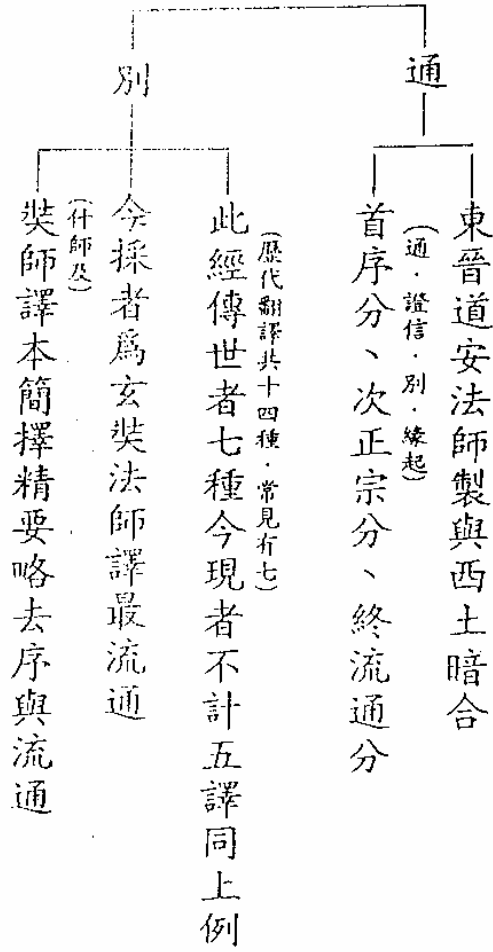 通
東晉道安法師製與西土暗合
(通．證信．別．緣起)
首序分、次正宗分、終流通分
別
(歷代翻譯共十四種．常見有七)
此經傳世者七種今現者不計五譯同上例
今採者爲玄奘法師譯最流通
(什師及)
奘師譯本簡擇精要略去序與流通